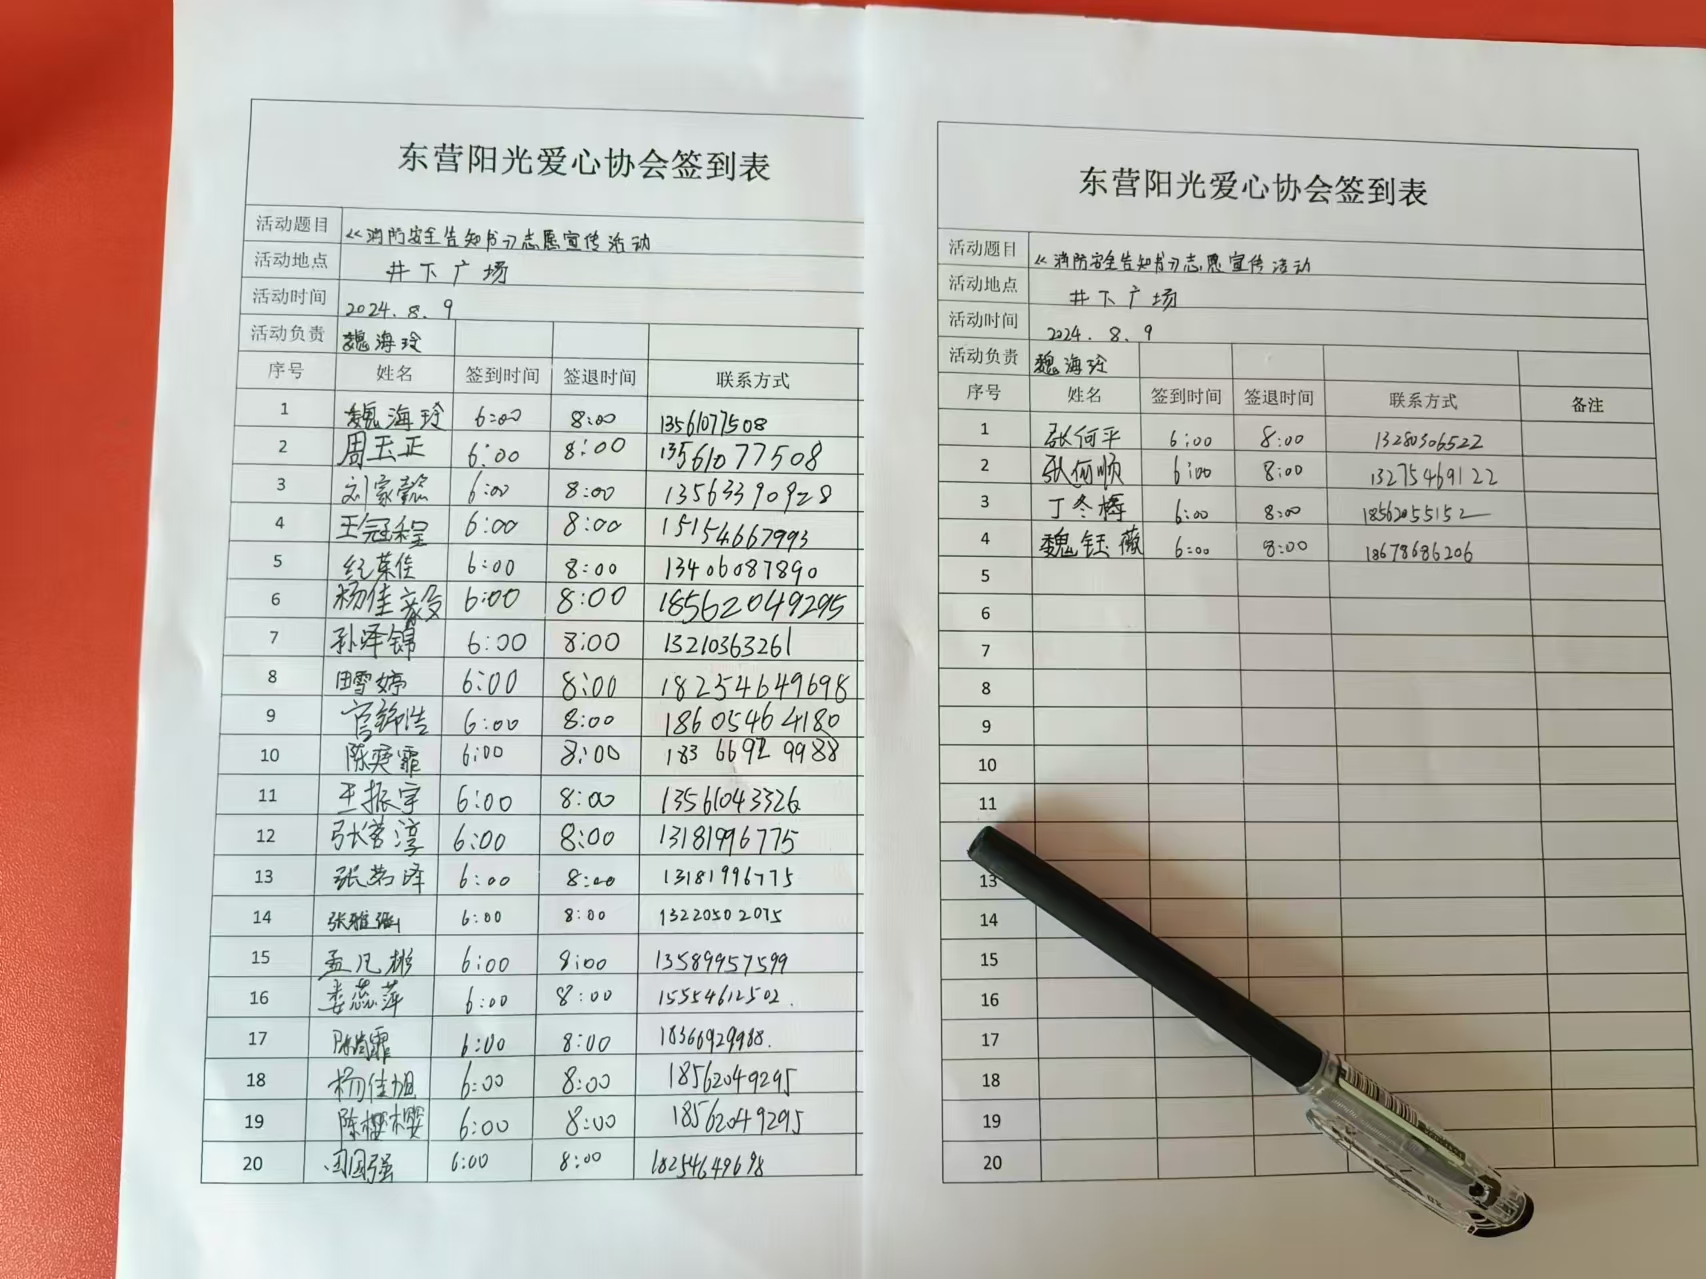 东营阳光爱心协会签到表
活动题目 《消防安全告知书》志愿宣传活动
活动地点 井下广场
活动时间 2024.8.9
活动负责 魏海玲
序号 姓名 签到时间 签退时间 联系方式
1 魏海玲 6:00 8:00 13561077508
2 周玉正 6:00 8:00 13561077508
3 刘家懿 6:00 8:00 13563390928
4 王冠程 6:00 8:00 15154667993
5 纪莱佳 6:00 8:00 13406087890
6 杨佳 6:00 8:00 18562049295
7 孙泽锦 6:00 8:00 13210363261
8 田雪婷 6:00 8:00 18254649698
9 宫锦浩 6:00 8:00 18605464180
10 陈奕霏 6:00 8:00 183 6692 9988
11 王振宇 6:00 8:00 13561043326
12 张茗淳 6:00 8:00 13181996775
13 张茗泽 6:00 8:00 13181996775
14 张雅涵 6:00 8:00 13220502075
15 孟凡彬 6:00 8:00 13589957599
16 娄蕊萍 6:00 8:00 15554612502.
17 陈尚霏 6:00 8:00 18366929988.
18 杨佳旭 6:00 8:00 18562049295
19 陈樱樱 6:00 8:00 18562049295
20 田国强 6:00 8:00 18254649698
东营阳光爱心协会签到表
活动题目 《消防安全告知书》志愿宣传活动
活动地点 井下广场
活动时间 2024.8.9
活动负责 魏海玲
序号 姓名 签到时间 签退时间 联系方式 备注
1 张何平 6:00 8:00 13280306522
2 张何顺 6:00 8:00 13275469122
3 丁冬梅 6:00 8:00 18562055152
4 魏钰薇 6:00 8:00 18678686206
5
6
7
8
9
10
11
13
14
15
16
17
18
19
20